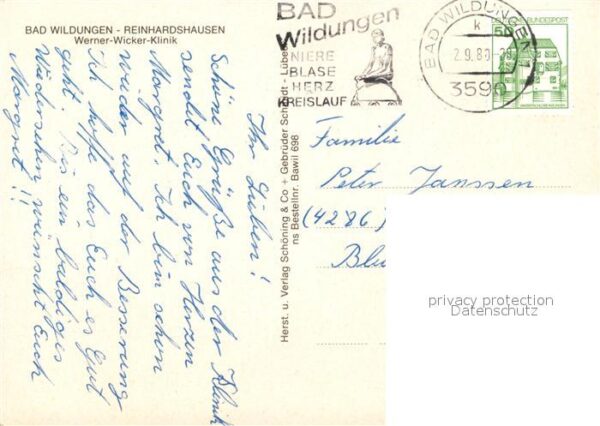 BAD WILDUNGEN - REINHARDSHAUSEN
Werner-Wicker-Klinik
Ihr Lieben!
Schöne Grüße aus der Klinik
sendet Euch von Herzen
Margret. Ich bin schon
wieder auf der Besserung
Ich hoffe das Euch es Gut
geht. Bis ein baldiges
Wiedersehen wünscht Euch
Margret!!
Herst. u. Verlag Schöning & Co + Gebrüder Schmidt - Lübeck
ns Bestellnr. Bawil 698
BAD
Wildungen
NIERE
BLASE
HERZ
KREISLAUF
BAD WILDUNGEN 1
k
2.9.80
3590
DEUTSCHE BUNDESPOST
50
Familie
Peter Janssen
(4286)
privacy protection
Datenschutz